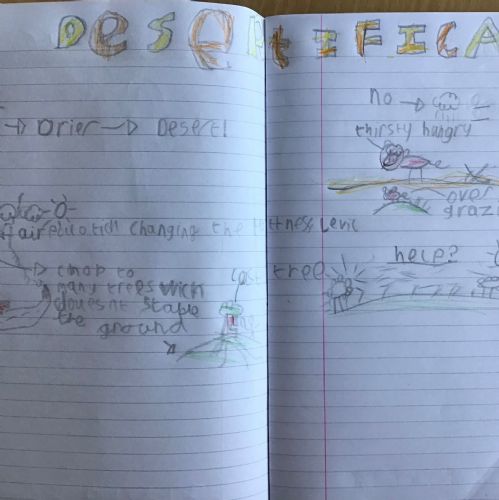 DESERTIFICA
→ Drier → Desert!
air polution changing the hotness level
chop to
many trees wich
doesnt stable
the ground
Last tree
No →
thirsty hungry
over
graz
help?